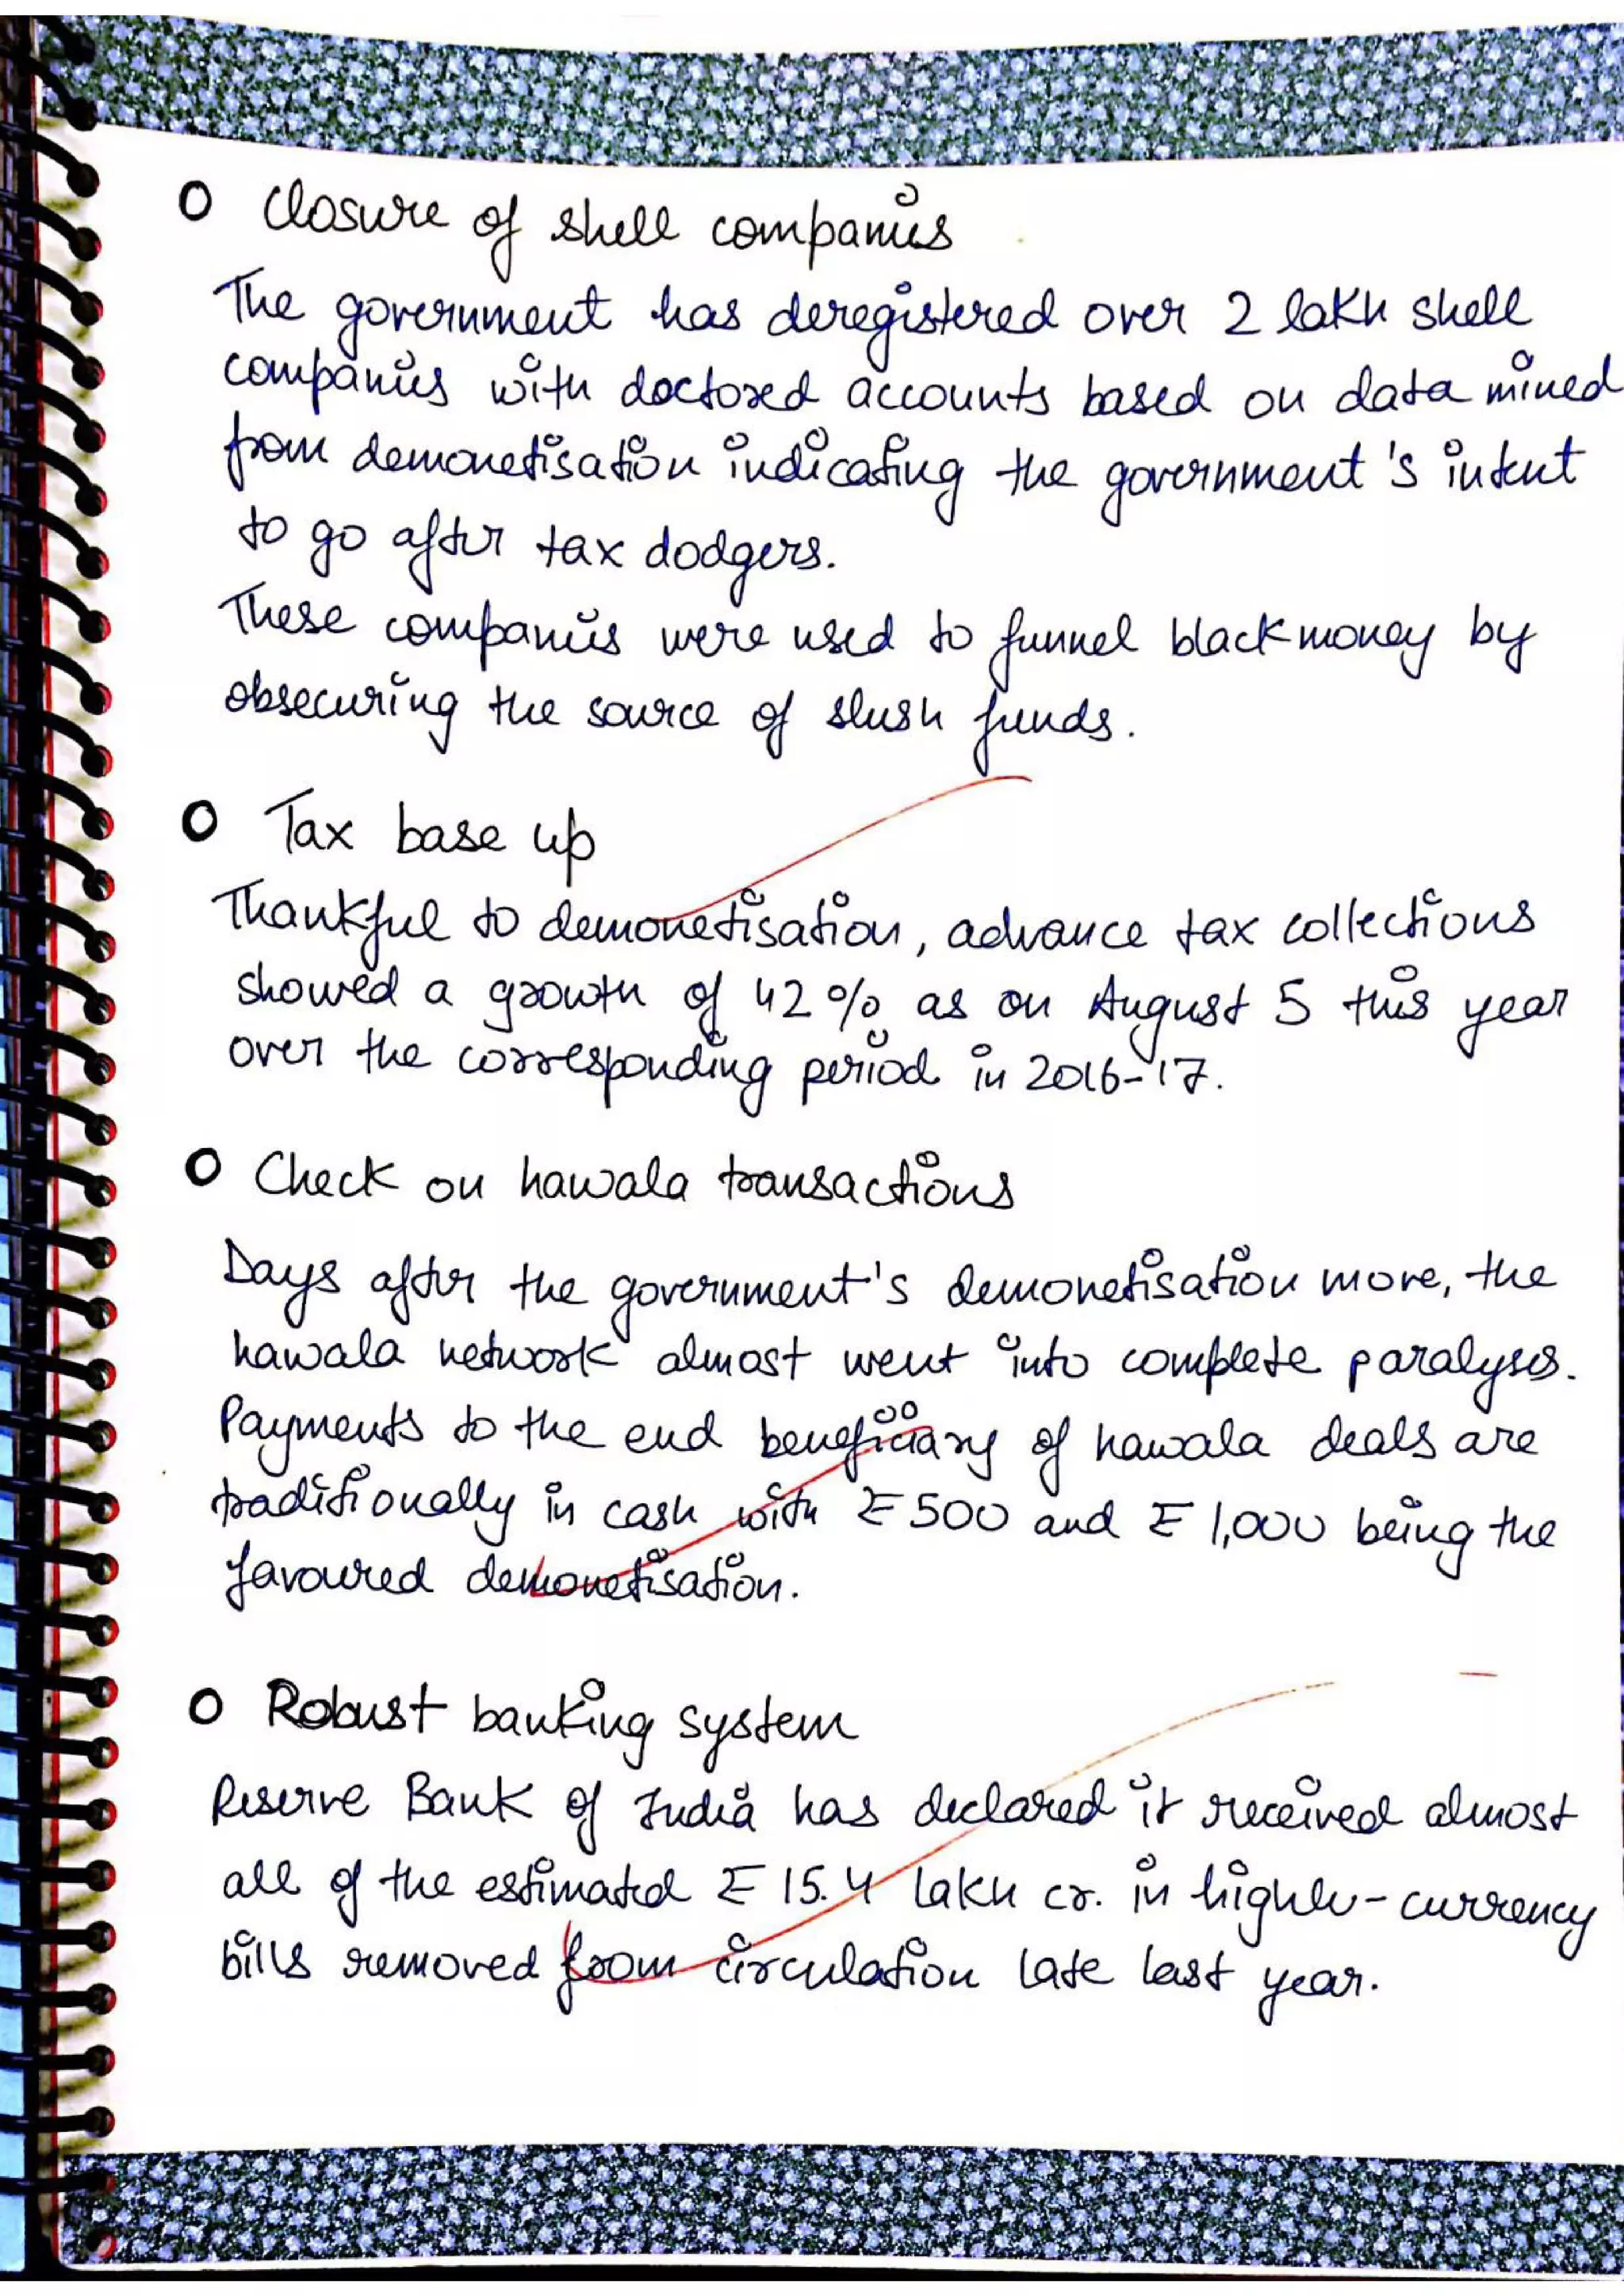 O Closure of shell companies
The government has deregistered over 2 lakh shell
companies with doctored accounts based on data mined
from demonetisation indicating the government's intent
to go after tax dodgers.
These companies were used to funnel black money by
obsecuring the source of slush funds.
O Tax base up
Thankful to demonetisation, advance tax collections
showed a growth of 42% as on August 5 this year
over the corresponding period in 2016-'17.
O Check on hawala transactions
Days after the government's demonetisation move, the
hawala network almost went into complete paralyses.
Payments to the end beneficiary of hawala deals are
traditionally in cash with ₹500 and ₹1,000 being the
favoured demonetisation.
O Robust banking system
Reserve Bank of India has declared it received almost
all of the estimated ₹15.4 lakh cr. in highly-currency
bills removed from circulation late last year.